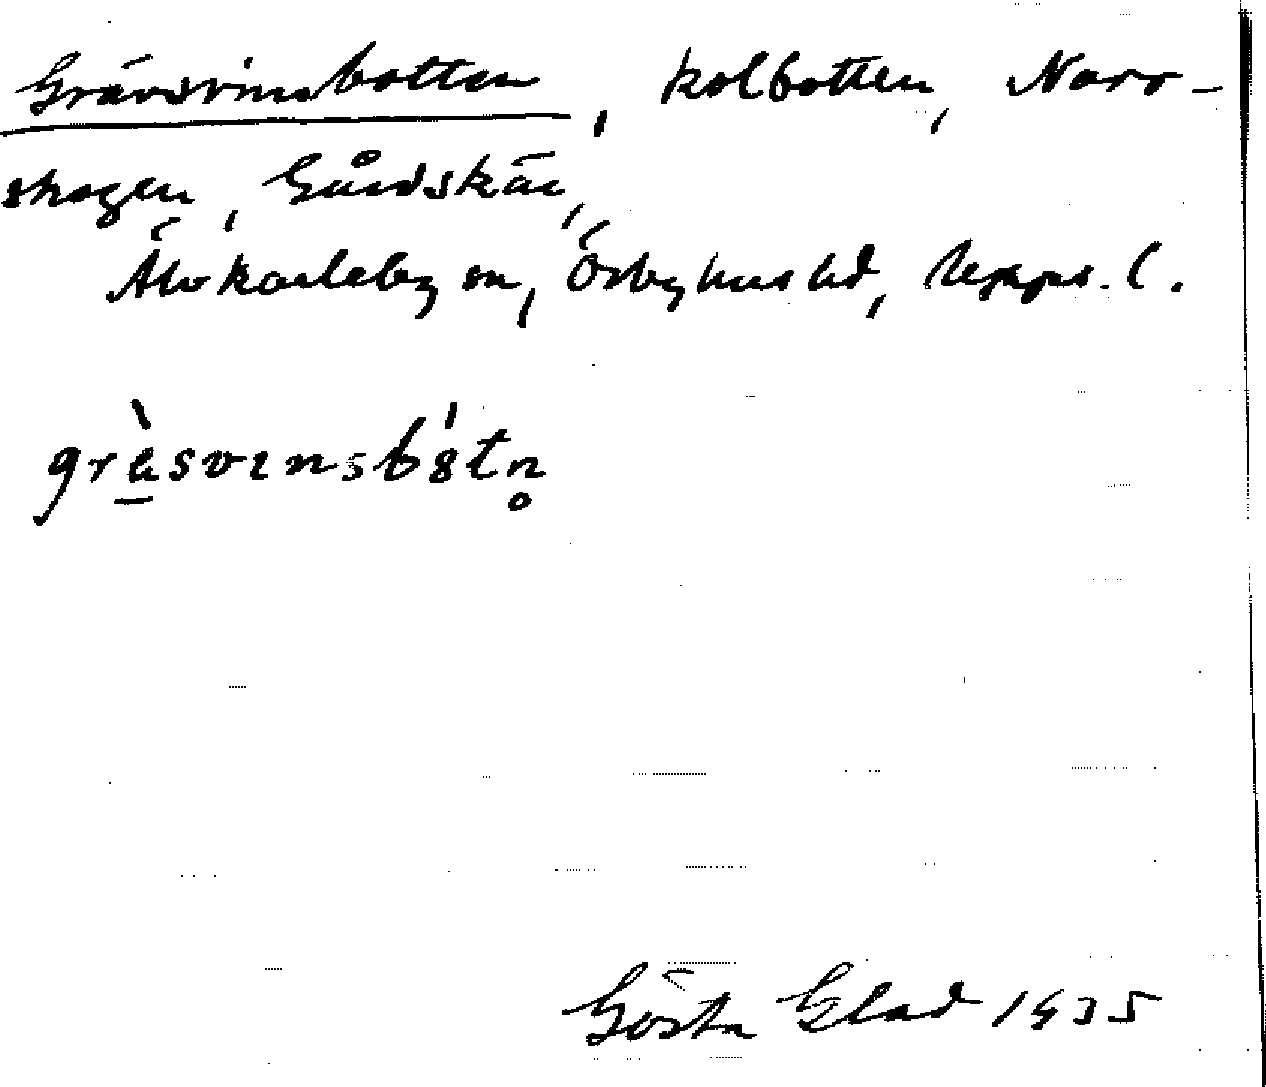 Grävsvinsbotten, kolbotten, Norr-
skogen, Gårdskär,
Älvkarleby sn, Örbyhus hd, Upps. l.
gràsvinsbótn̥
Gösta Glad 1935